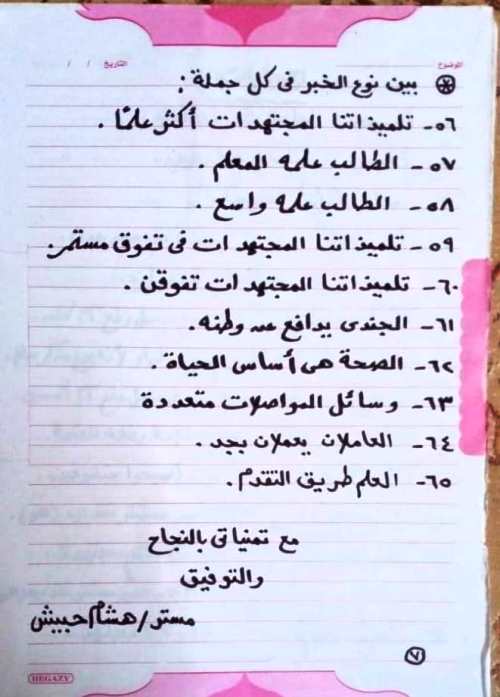 الموضوع التاريخ / /
بين نوع الخبر فى كل جملة :
٥٦- تلميذاتنا المجتهدات أكثر علمًا .
٥٧- الطالب علمه المعلم .
٥٨- الطالب علمه واسع .
٥٩- تلميذاتنا المجتهدات فى تفوق مستمر .
٦٠- تلميذاتنا المجتهدات تفوقن .
٦١- الجندى يدافع عن وطنه .
٦٢- الصحة هى أساس الحياة .
٦٣- وسائل المواصلات متعددة
٦٤- العاملان يعملان بجد .
٦٥- العلم طريق التقدم .
مع تمنياتى بالنجاح
والتوفيق
مستر / هشام حبيش
٧
HEGAZY